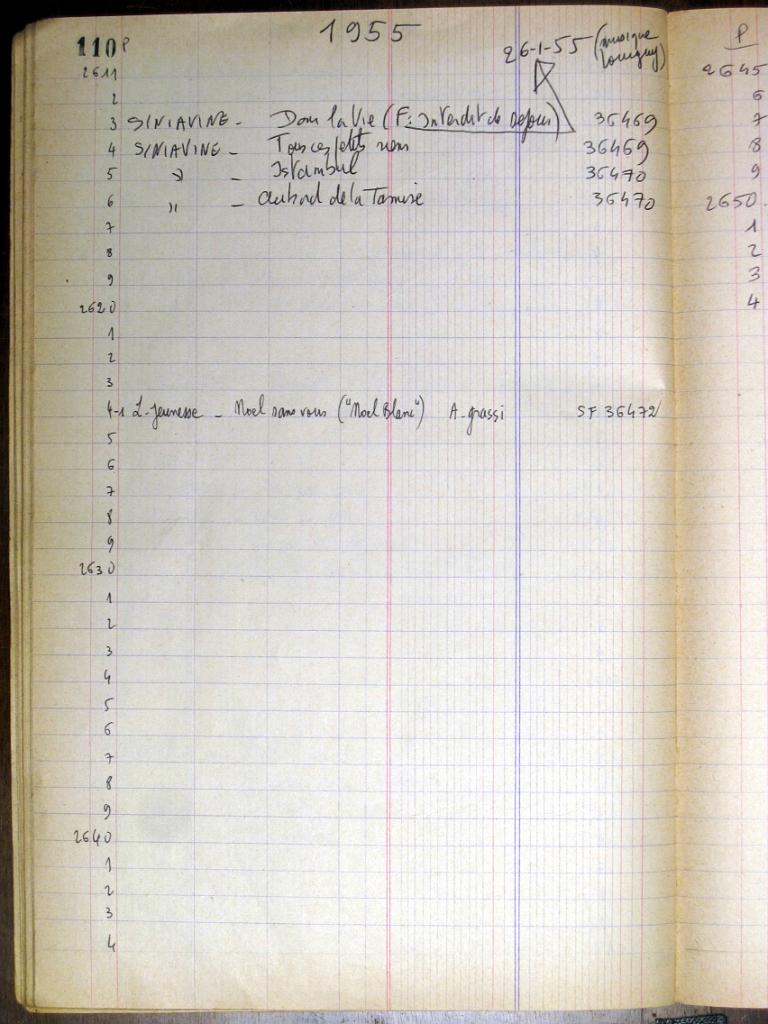 110 P
1955
26-1-55 (musique Louiguy)
2611
2
3 SINIAVINE - Dans la Vie (F: Interdit de Séjour) 36469
4 SINIAVINE - Tous ces petits riens 36469
5 " - Istambul 36470
6 " - au bord de la Tamise 36470
7
8
9
2620
1
2
3
4-1 L. Jeunesse - Noel sans vous ("Noel Blanc") A. grassi SF 36472
5
6
7
8
9
2630
1
2
3
4
5
6
7
8
9
2640
1
2
3
4
P
2645
6
7
8
9
2650
1
2
3
4